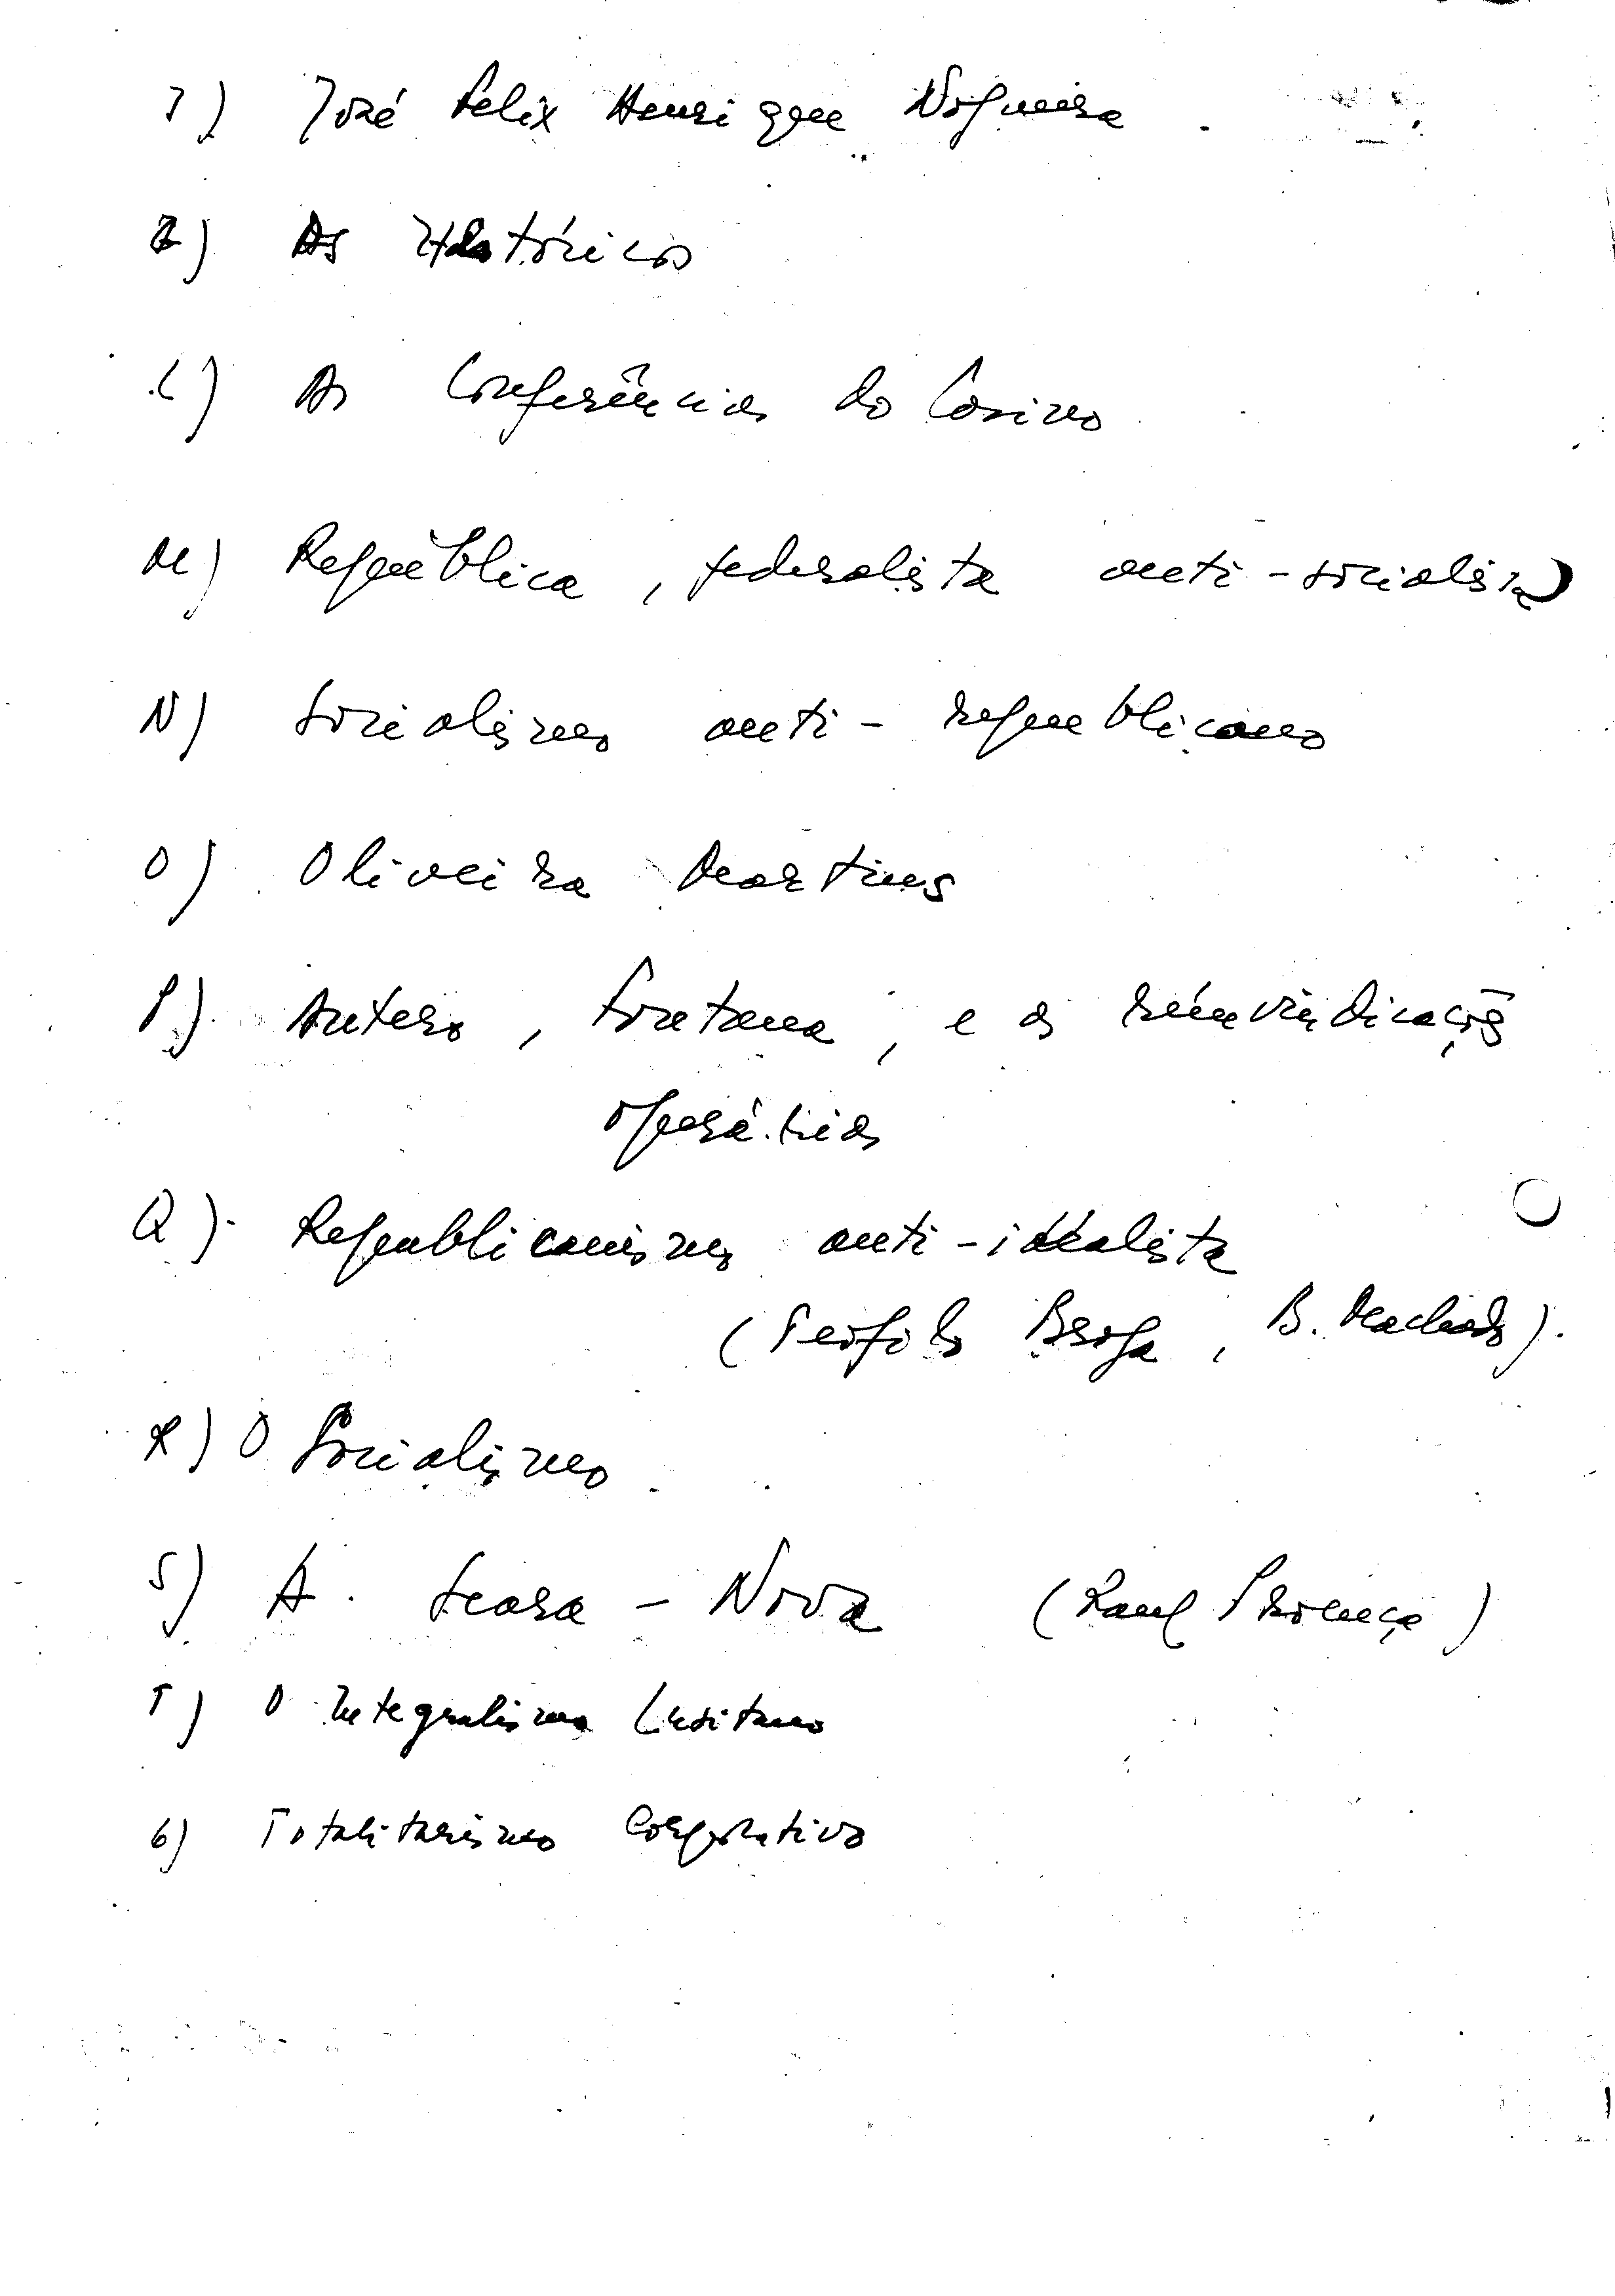 J) José Felix Henrique Nogueira.
As Históricos
L) As Conferências do Casino
M) República, federalista anti-socialista
N) Socialismo anti-republicano
O) Oliveira Martins
P) Antero, Fontana, e as reinvindicações
operárias
Q) Republicanismo anti-idealista
(Teofolo Braga, B. Machado).
R) O Socialismo
S) A Seara-Nova (Raul Proença)
T) O Integralismo Lusitano
6) Totalitarismo Corporativo